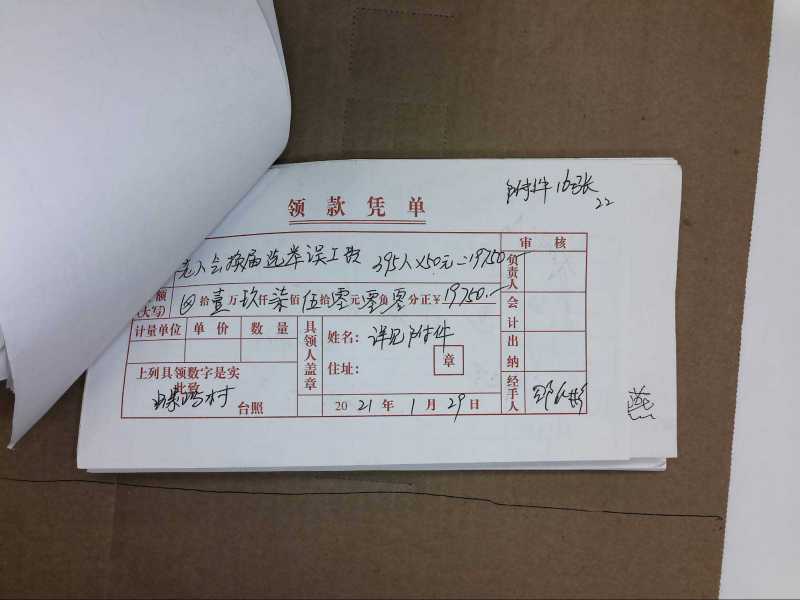 附件 16张
22
领款凭单
老人会换届选举误工费 395人×50元=19750.—
额(大写) ⊗拾壹万玖仟柒佰伍拾零元零角零分正¥19750.—
计量单位 单价 数量
具领人盖章
姓名: 详见附件
住址:
章
上列具领数字是实
此致
村 台照
2021年1月29日
审核
负责人
会计
出纳
经手人